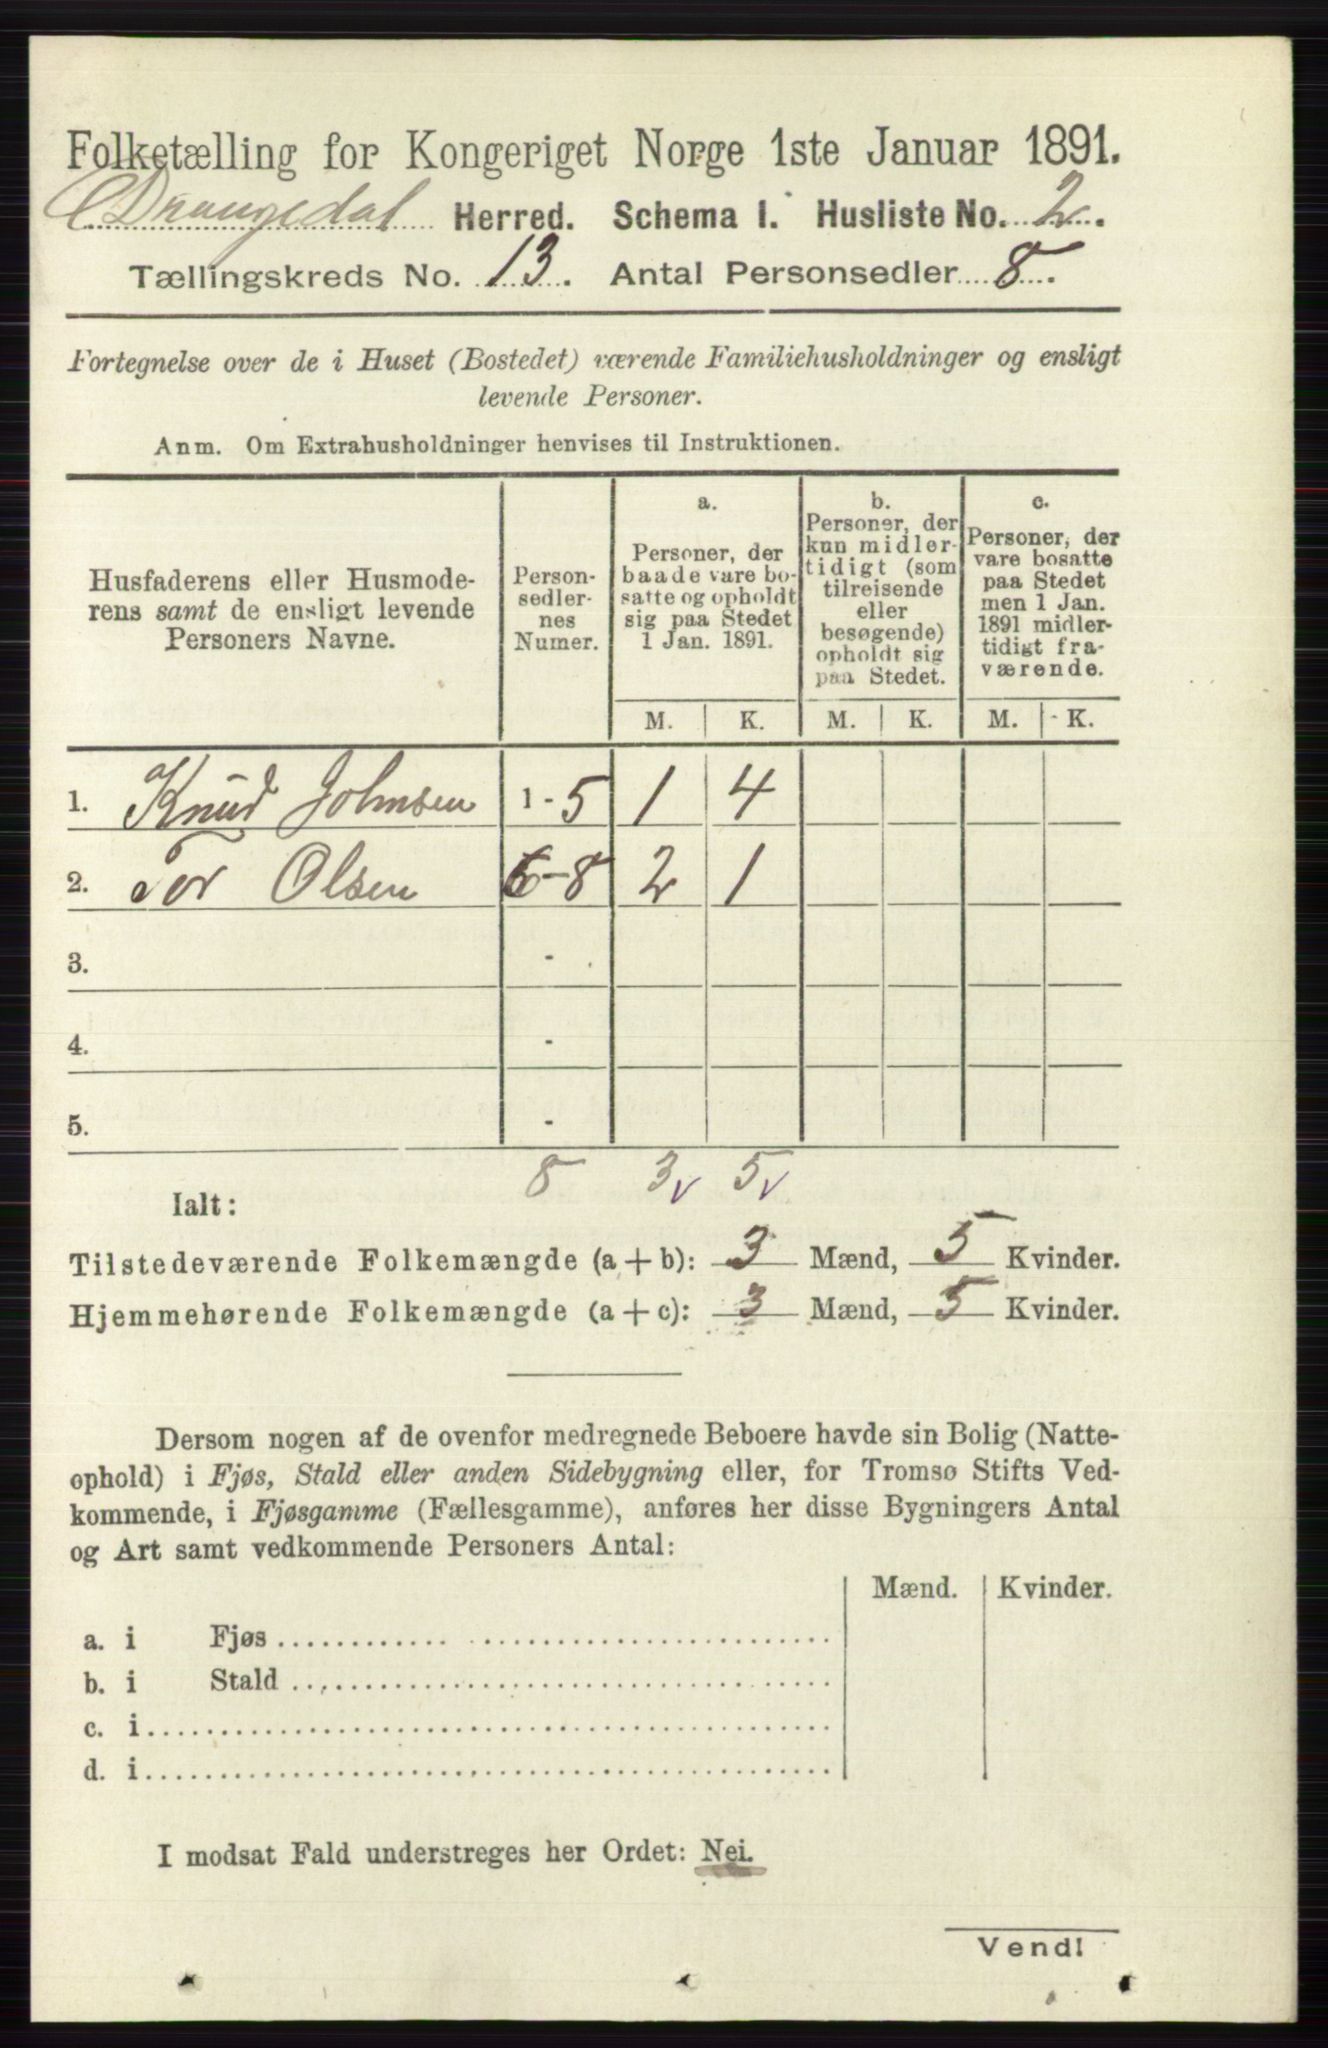 Folketælling for Kongeriget Norge 1ste Januar 1891.
Drangedal Herred. Schema I. Husliste No. 2.
Tællingskreds No. 13. Antal Personsedler 8.
Fortegnelse over de i Huset (Bostedet) værende Familiehusholdninger og ensligt
levende Personer.
Anm. Om Extrahusholdninger henvises til Instruktionen.
Husfaderens eller Husmode-
rens samt de ensligt levende
Personers Navne.
Person-
sedler-
nes
Numer.
a.
Personer, der
baade vare bo-
satte og opholdt
sig paa Stedet
1 Jan. 1891.
b.
Personer, der
kun midler-
tidigt (som
tilreisende
eller
besøgende)
opholdt sig
paa Stedet.
c.
Personer, der
vare bosatte
paa Stedet
men 1 Jan.
1891 midler-
tidigt fra-
værende.
M. K. M. K. M. K.
1. Knud Johnsen 1 - 5 1 4
2. Tor Olsen 6-8 2 1
3. -
4. -
5. -
8 3 v 5 v
Ialt:
Tilstedeværende Folkemængde (a + b): 3 Mænd, 5 Kvinder.
Hjemmehørende Folkemængde (a + c): 3 Mænd, 5 Kvinder.
Dersom nogen af de ovenfor medregnede Beboere havde sin Bolig (Natte-
ophold) i Fjøs, Stald eller anden Sidebygning eller, for Tromsø Stifts Ved-
kommende, i Fjøsgamme (Fællesgamme), anføres her disse Bygningers Antal
og Art samt vedkommende Personers Antal:
Mænd. Kvinder.
a. i Fjøs
b. i Stald
c. i
d. i
I modsat Fald understreges her Ordet: Nei.
Vend!